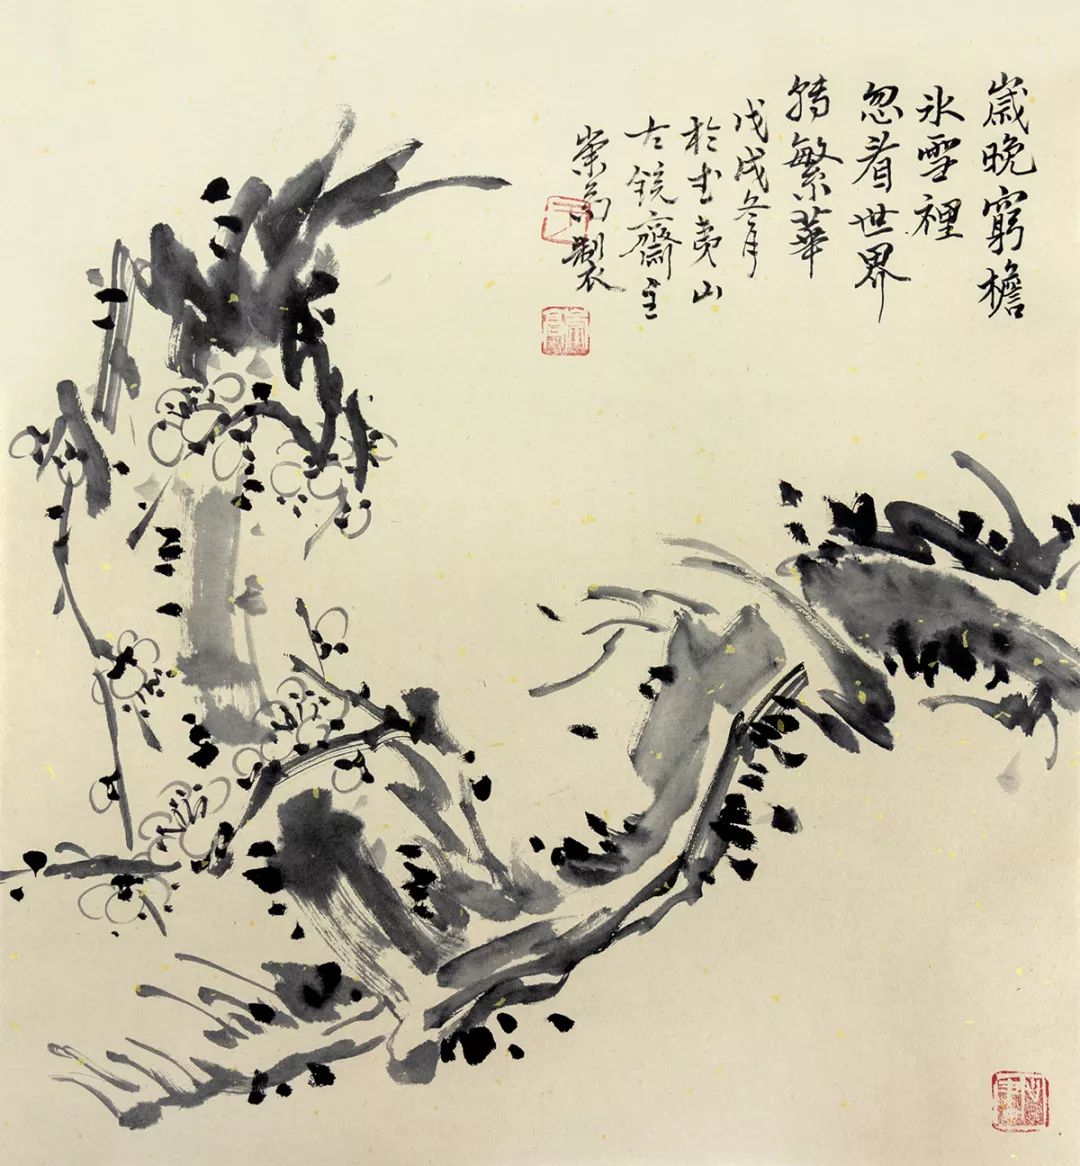 歲晚窮檐
冰雪裡
忽看世界
轉繁華
戊戌冬月
於武夷山
古鏡齋主
崇為製